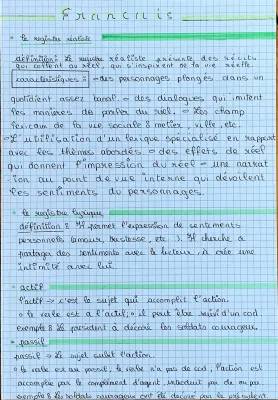 Francais
• le registre réaliste
définition : Le registre réaliste présente des récits
qui collent au réel, qui s'inspirent de la vie réelle.
caracteristiques : - des personnages plongés dans un
quotidien assez banal. - des dialogues qui imitent
les manières de parler du réel. - Les champ
lexicaux de la vie sociale : metier, ville, etc.
- L'utilisation d'un lexique specialisé en rapport
avec les thèmes abordés - des effets de réel
qui donnent l'impression du réel - une narrat
ion au point de vue interne qui dévoilent
les sentiments du personnages.
• le registre lyrique
définition : Il permet l'expression de sentiments
personnels (amour, tristesse, etc). Il cherche à
partager des sentiments avec le lecteur, à crée une
intimité avec lui.
• actif
l'actif → c'est le sujet qui accomplit l'action.
• le verbe est à l'actif, il peut être suivi d'un cod
exemple : Le président à décoré les soldats courageux.
• passif
passif → Le sujet subit l'action.
• le verbe est au passif, le verbe n'a pas de cod, l'action est
accomplie par le complément d'agent, introduit par de ou par
exemple : Les soldats courageux ont été décoré par le président